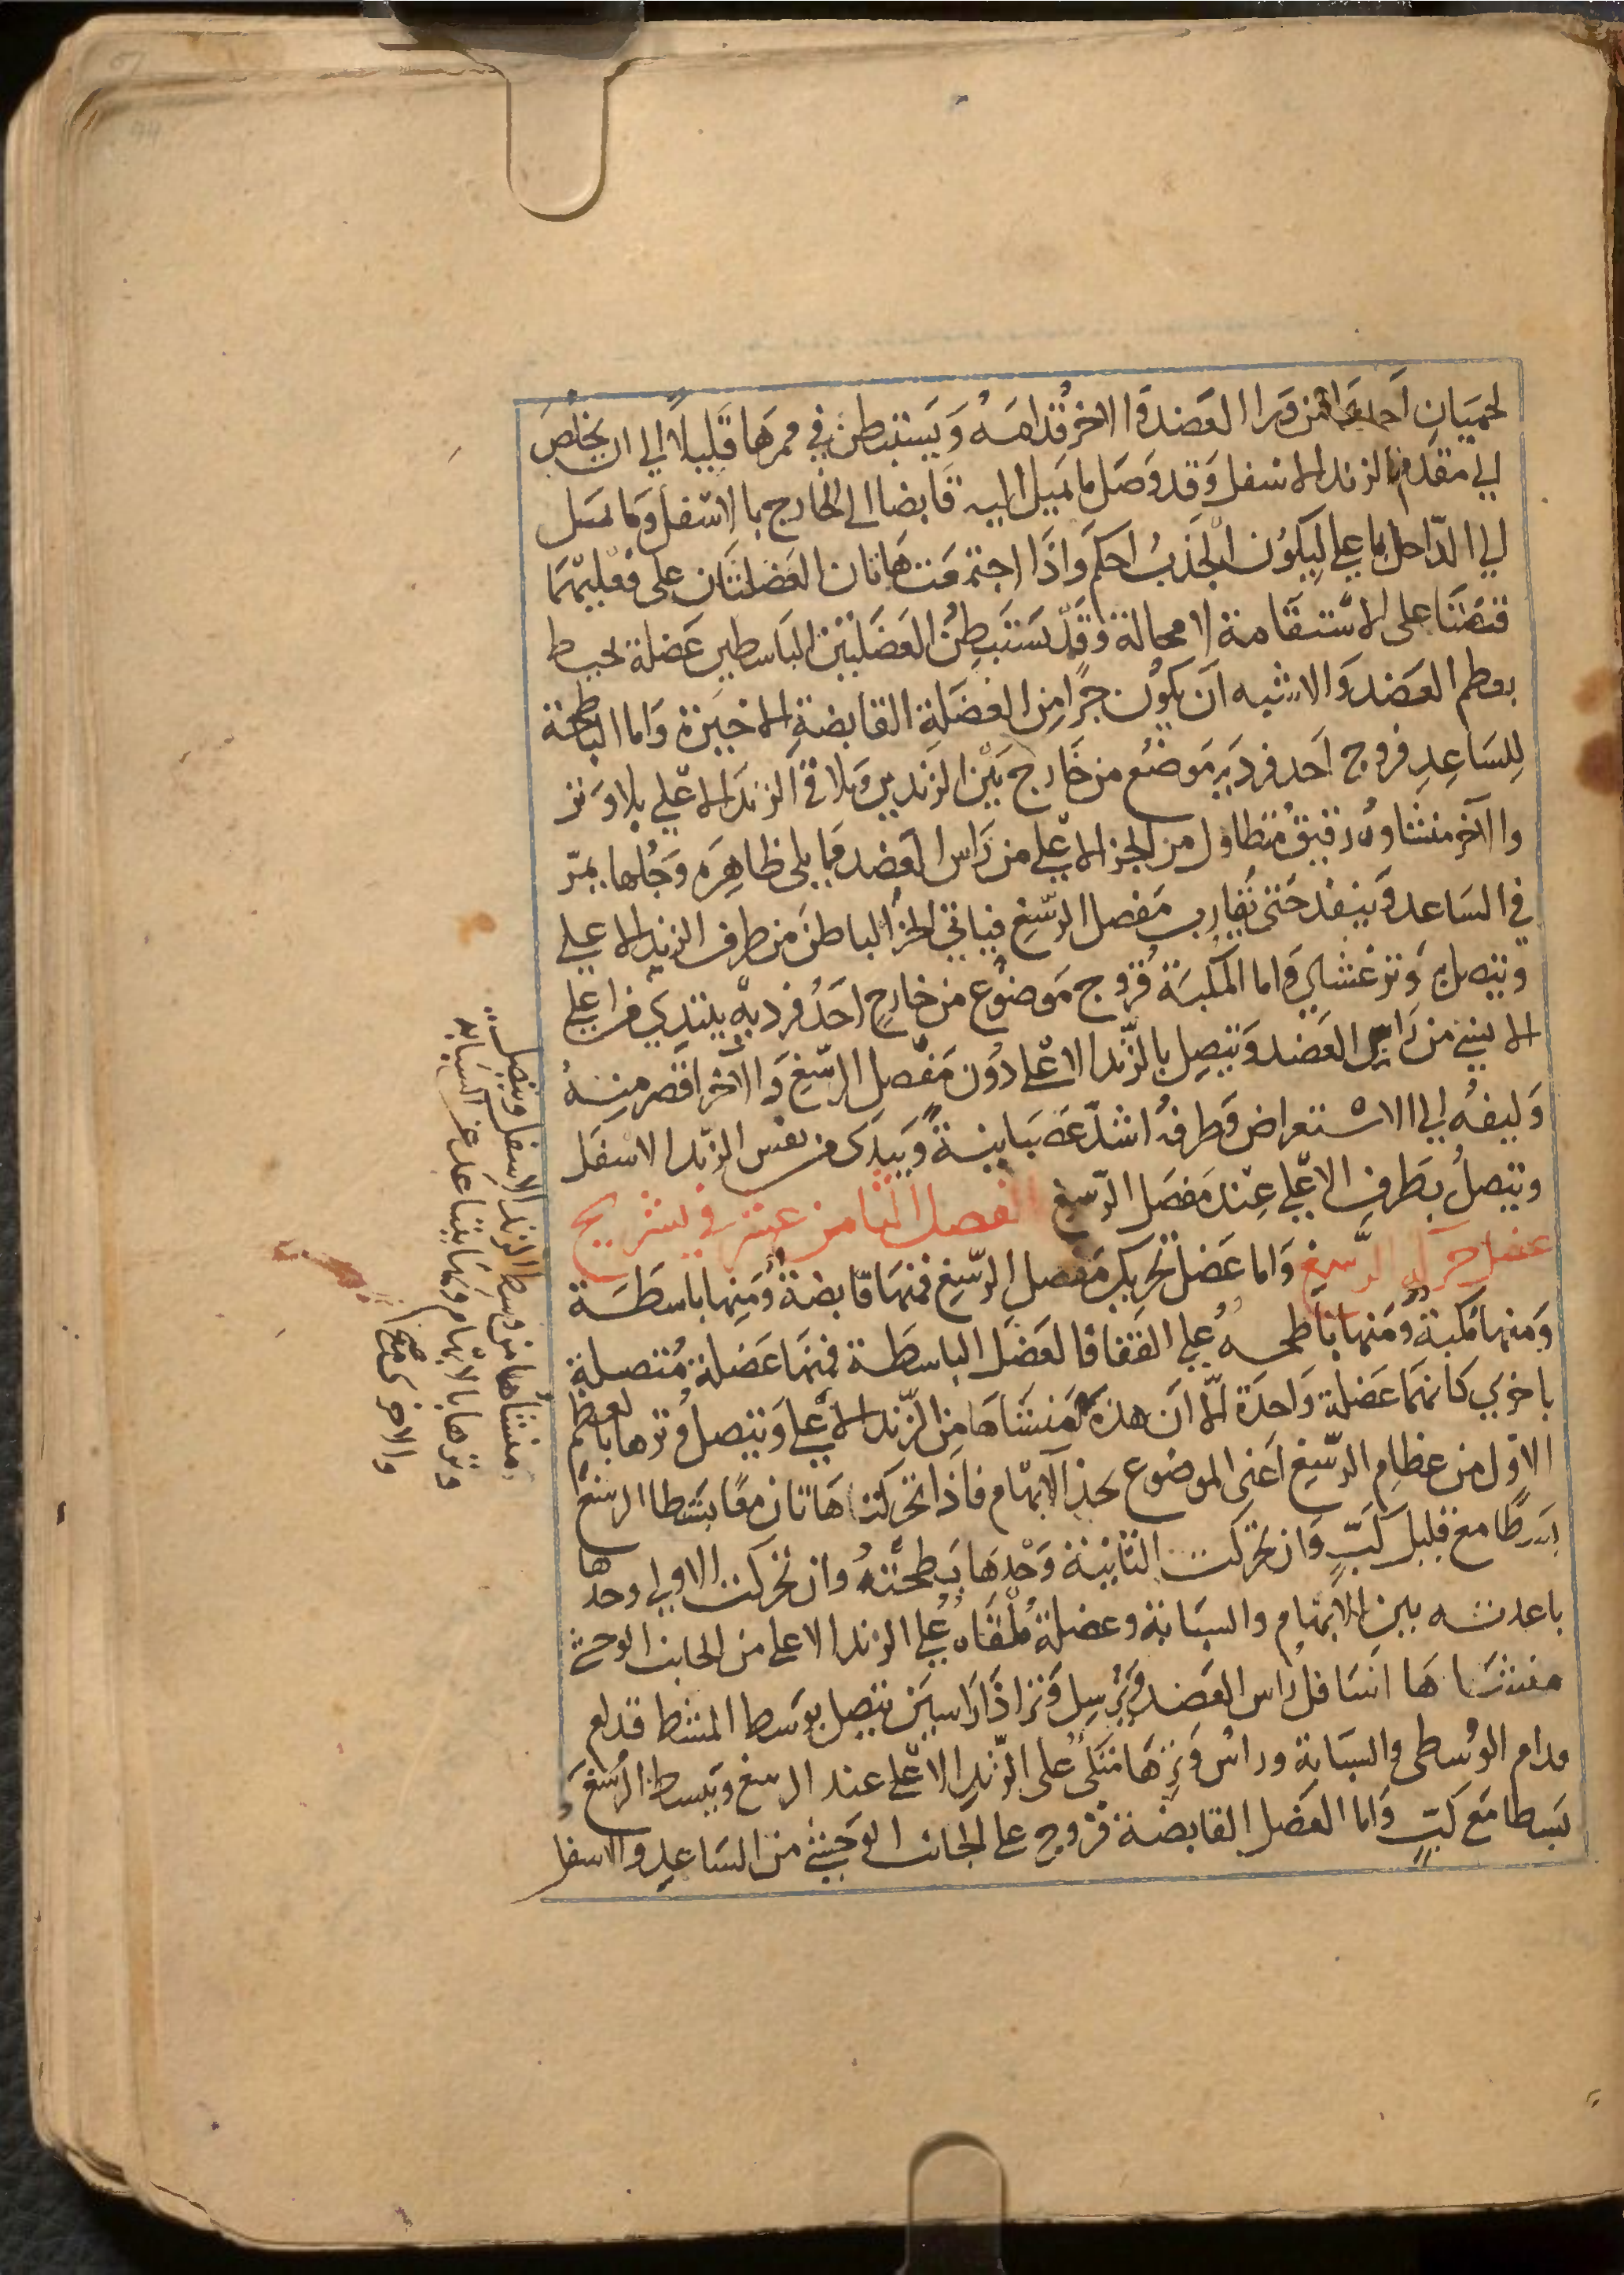 لحميان احدهما من ورا العضد والاخر قدامه ويستبطن في ممرها قليلا الي ان يخلص
الي مقدم الزند الاسفل وقد وصل ما يميل اليه قابضا الي الخارج بالاسفل وما يميل
الي الداخل بالاعلي ليكون الجذب احكم واذا اجتمعت هاتان العضلتان علي فعليهما
قبضتا علي الاستقامة لا محالة وقد يستبطن العضلتين الباسطين عضلة يحيط
بعظم العضد والاشبه ان يكون جزا من العضلة القابضة الاخيرة واما الباطحة
للساعد فزوج احد فرديه موضع من خارج بين الزندين ويلاقي الزند الاعلي بلا وتر
والآخر منشاوه رقيق متطاول من الجز الاعلي من راس العضد مما يلي ظاهره وجلها يمر
في الساعد وينفذ حتي تقارب مفصل الرسغ فياتي الجز الباطن من طرف الزند الاعلي
ويتصل به وتر غشاي واما المكبة فزوج موضوع من خارج احد فرديه يبتدي من اعلي
الانسي من راس العضد ويتصل بالزند الاعلي دون مفصل الرسغ والآخر اقصر منه
وليفه الي الاستعراض وطرفه اشد عصبانية ويبتدي من نفس الزند الاسفل
ويتصل بطرف الاعلي عند مفصل الرسغ الفصل الثامن عشر في تشريح
عضل حركة الرسغ واما عضل تحريك مفصل الرسغ فمنها قابضة ومنها باسطة
ومنها مكبة ومنها باطحه علي القفا فالعضل الباسطة فمنها عضلة متصلة
باخري كانهما عضلة واحدة الا ان هذه منشاها من الزند الاعلي ويتصل وترها بالعظم
الاول من عظام الرسغ اعني الموضوع بحذا الابهام فاذا تحركت هاتان معا بسطا الرسغ
بسطا مع قليل كب وان تحركت الثانية وحدها بطحته وان تحركت الاولي وحدها
باعدته بين الابهام والسبابة وعضلة ملقاه علي الزند الاعلي من الجانب الوحشي
منشاها اسافل راس العضد ويرسل وترا ذا راسين يتصل بوسط المشط قدام
قدام الوسطي والسبابة وراس وترها متكي علي الزند الاعلي عند الرسغ ويبسط الرسغ
بسطا مع كب واما العضل القابضة فزوج علي الجانب الوحشي من الساعد والاسفل
منشاها من وسط الزند الاسفل ويتصل
وترها بالابهام وبها يتباعد عن السبابه
والاخري صح